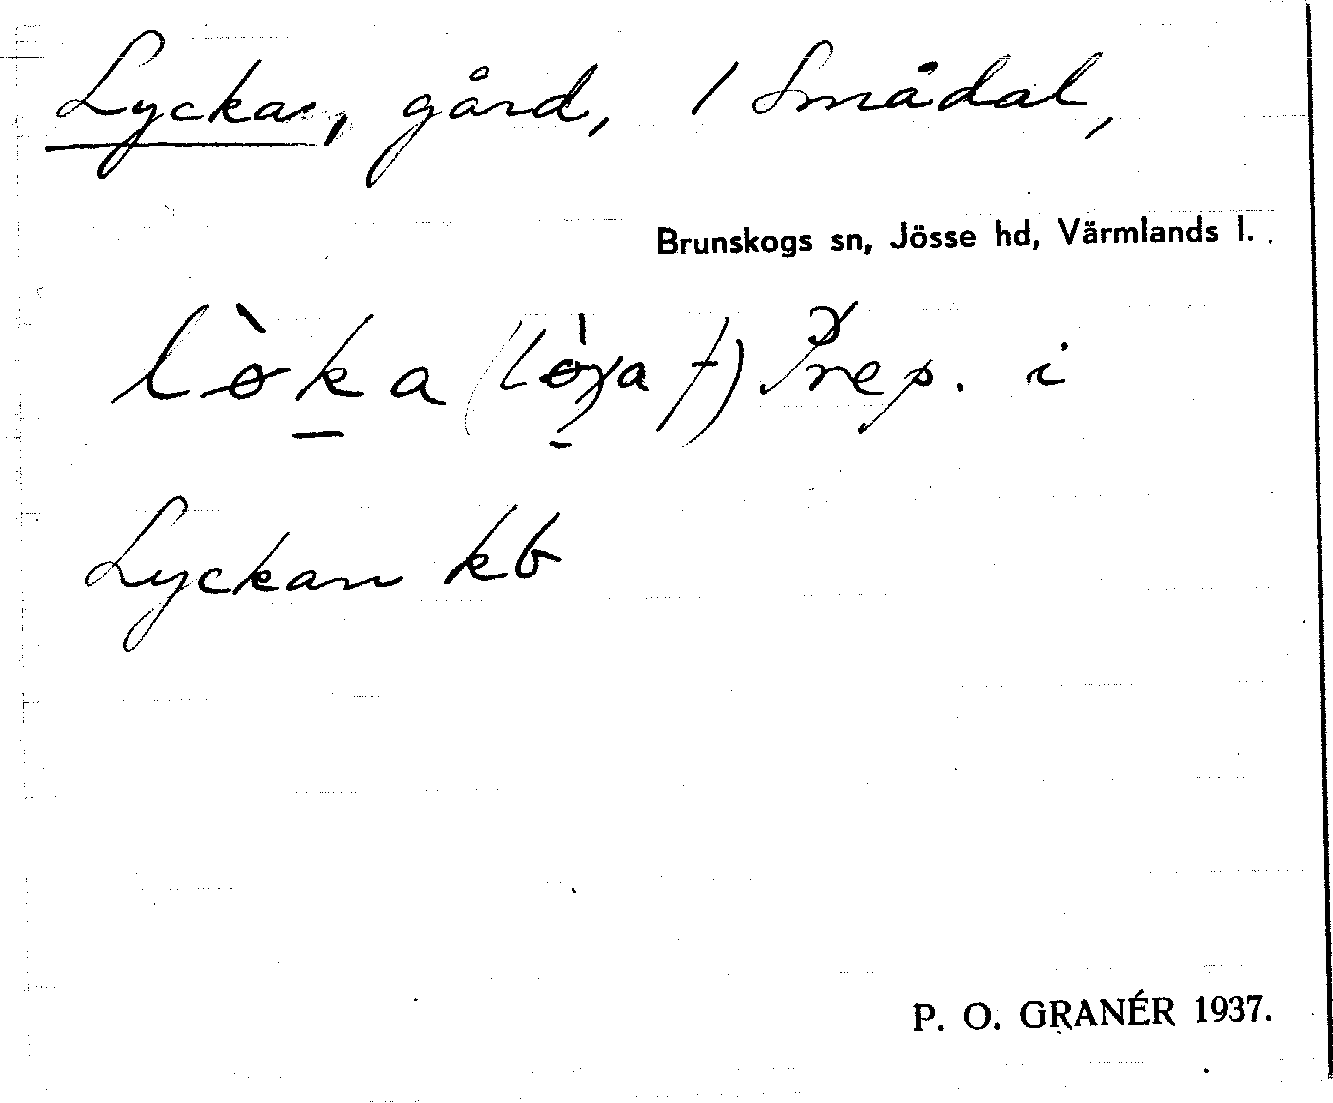 Lyckan, gård, 1 Smådal,
Brunskogs sn, Jösse hd, Värmlands l.
lòka ( †) Prep. i
Lyckan kb
P. O. GRANÉR 1937.